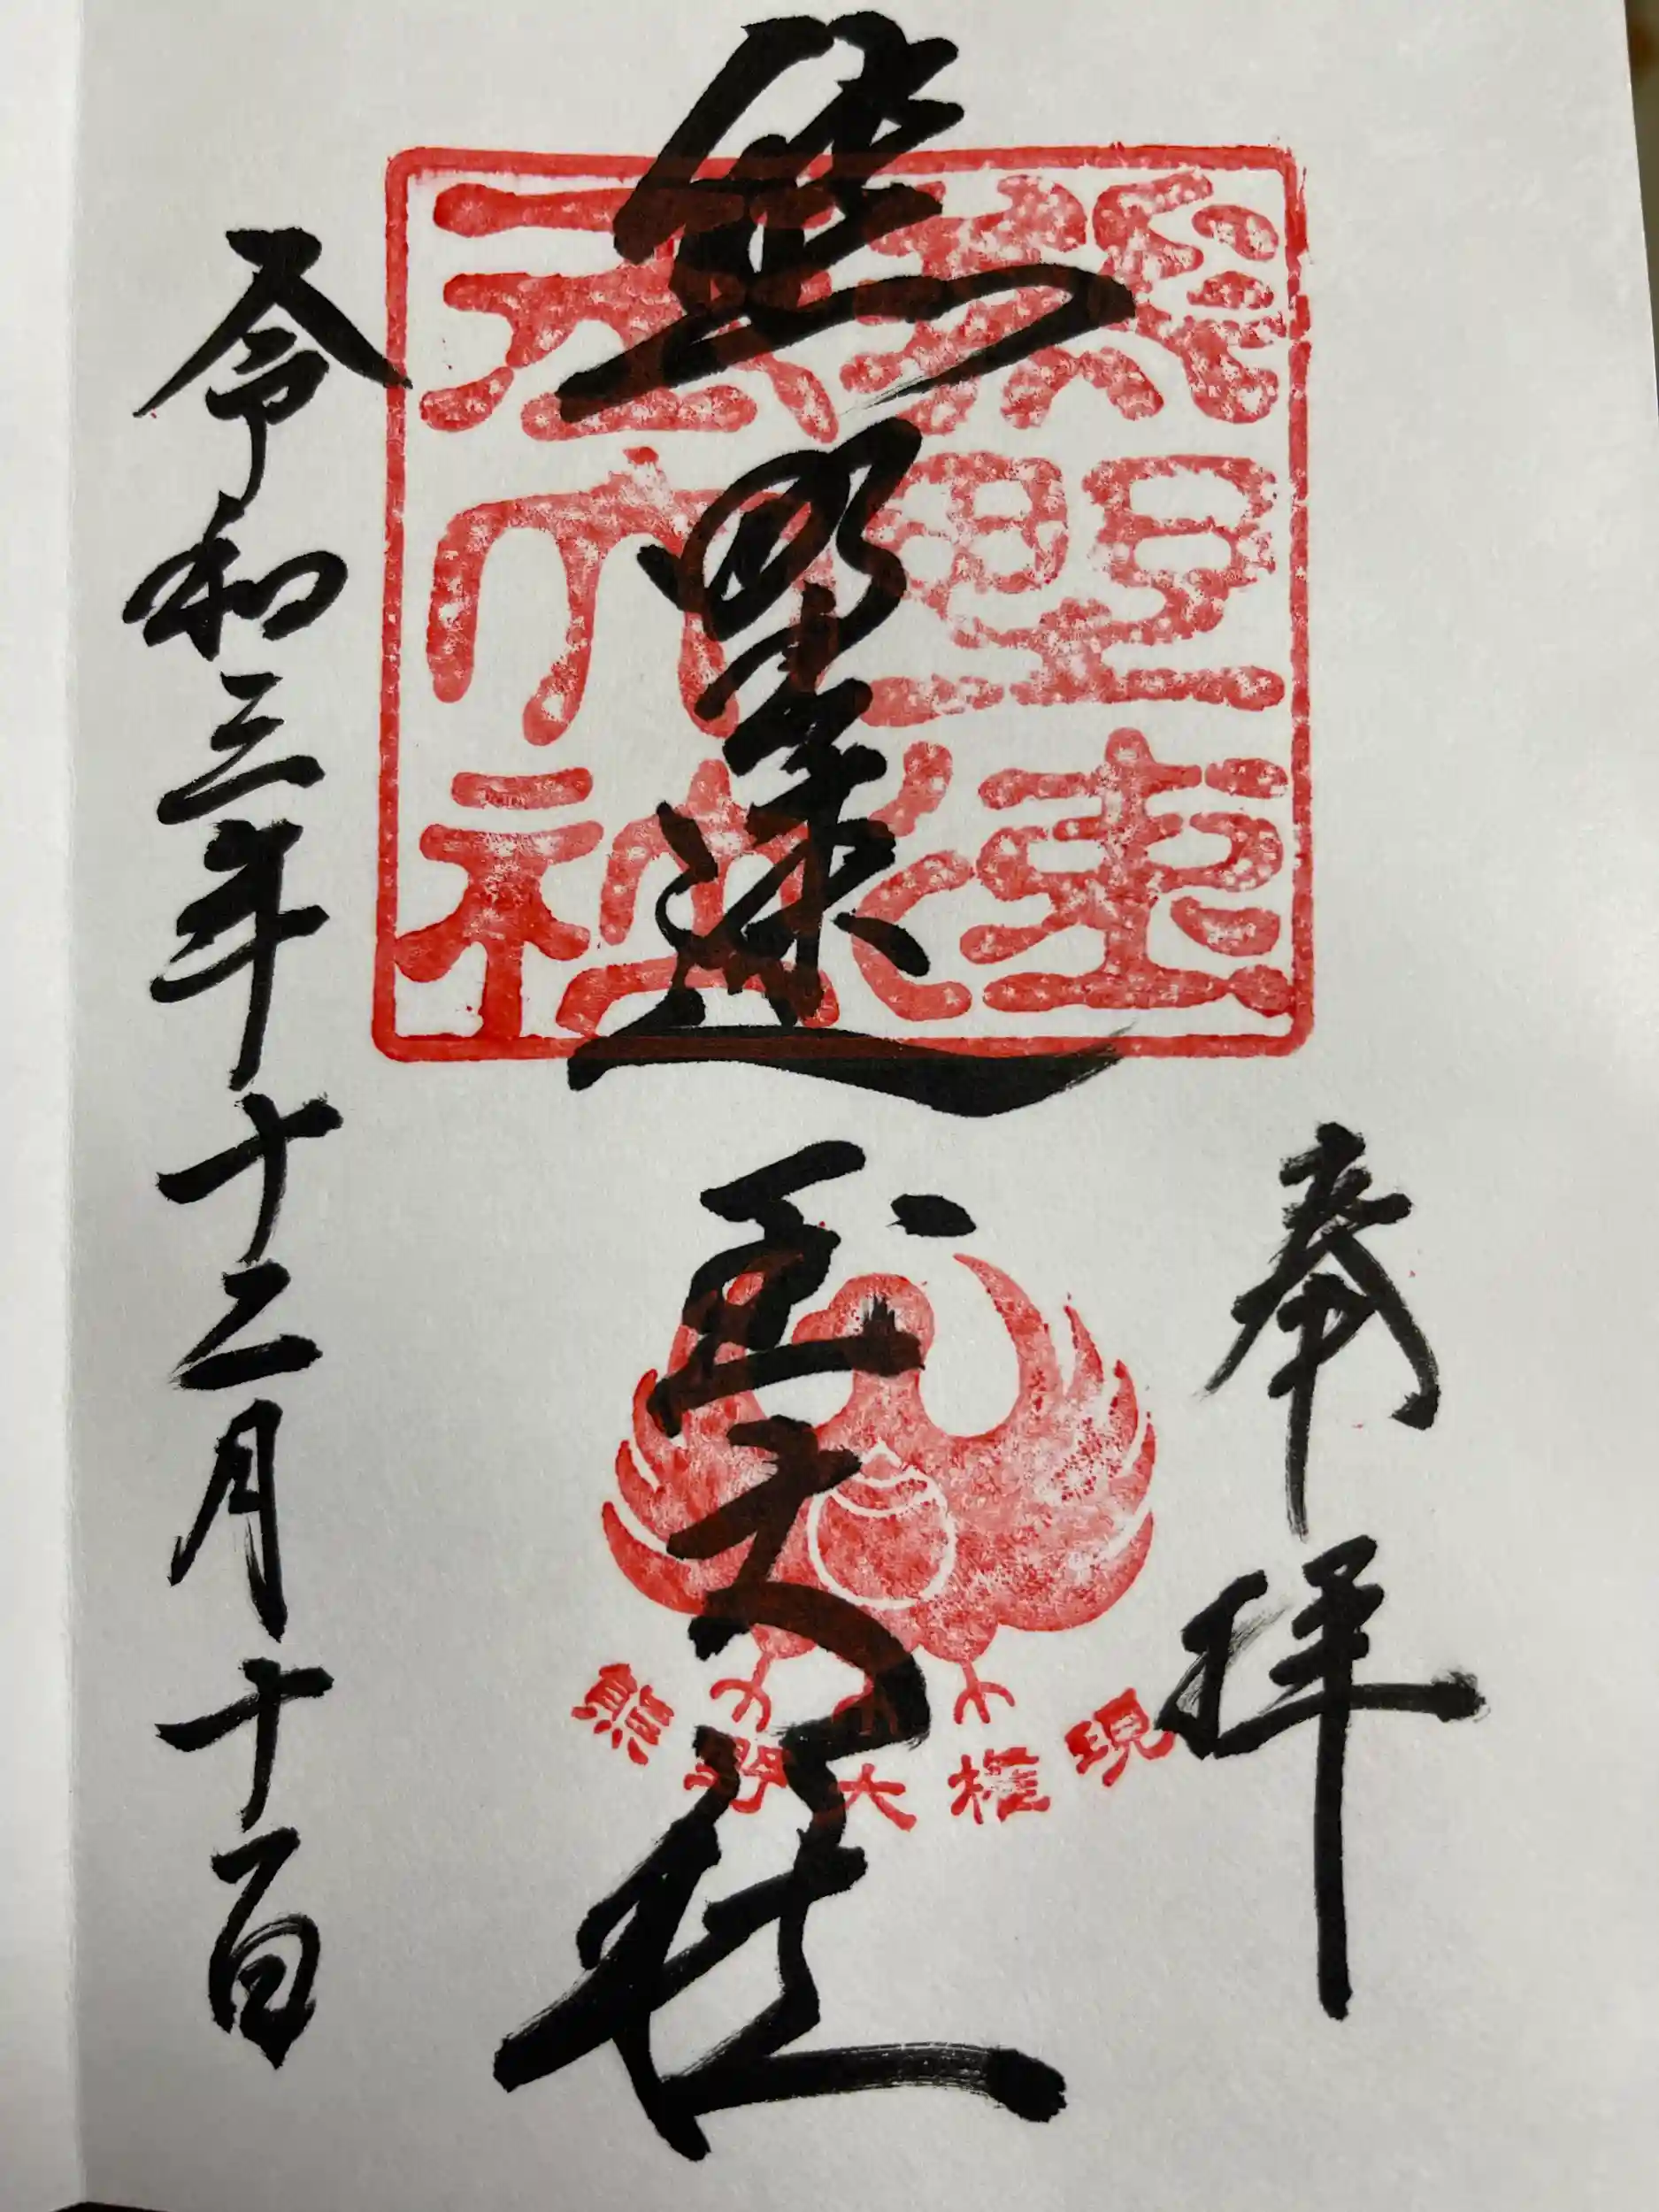 奉拝
熊野速玉大社
令和三年十二月十一日
熊野速
玉大神
熊野大権現